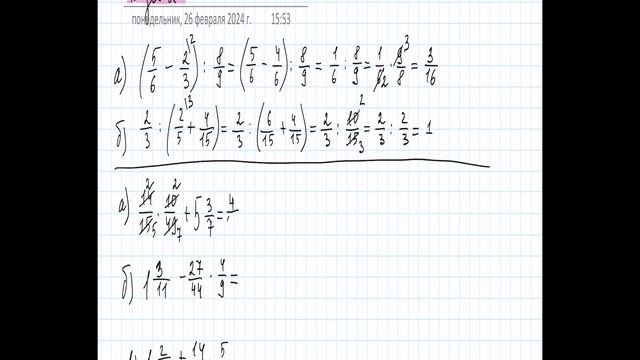 понедельник, 26 февраля 2024 г. 15:53
а) (5/6 - 2/3) : 8/9 = (5/6 - 4/6) : 8/9 = 1/6 : 8/9 = 1/6 · 9/8 = 3/16
б) 2/3 : (2/5 + 4/15) = 2/3 : (6/15 + 4/15) = 2/3 : 10/15 = 2/3 : 2/3 = 1
а) 14/15 · 10/49 + 5 3/7 = 4/
б) 1 3/11 - 27/44 · 4/9 =